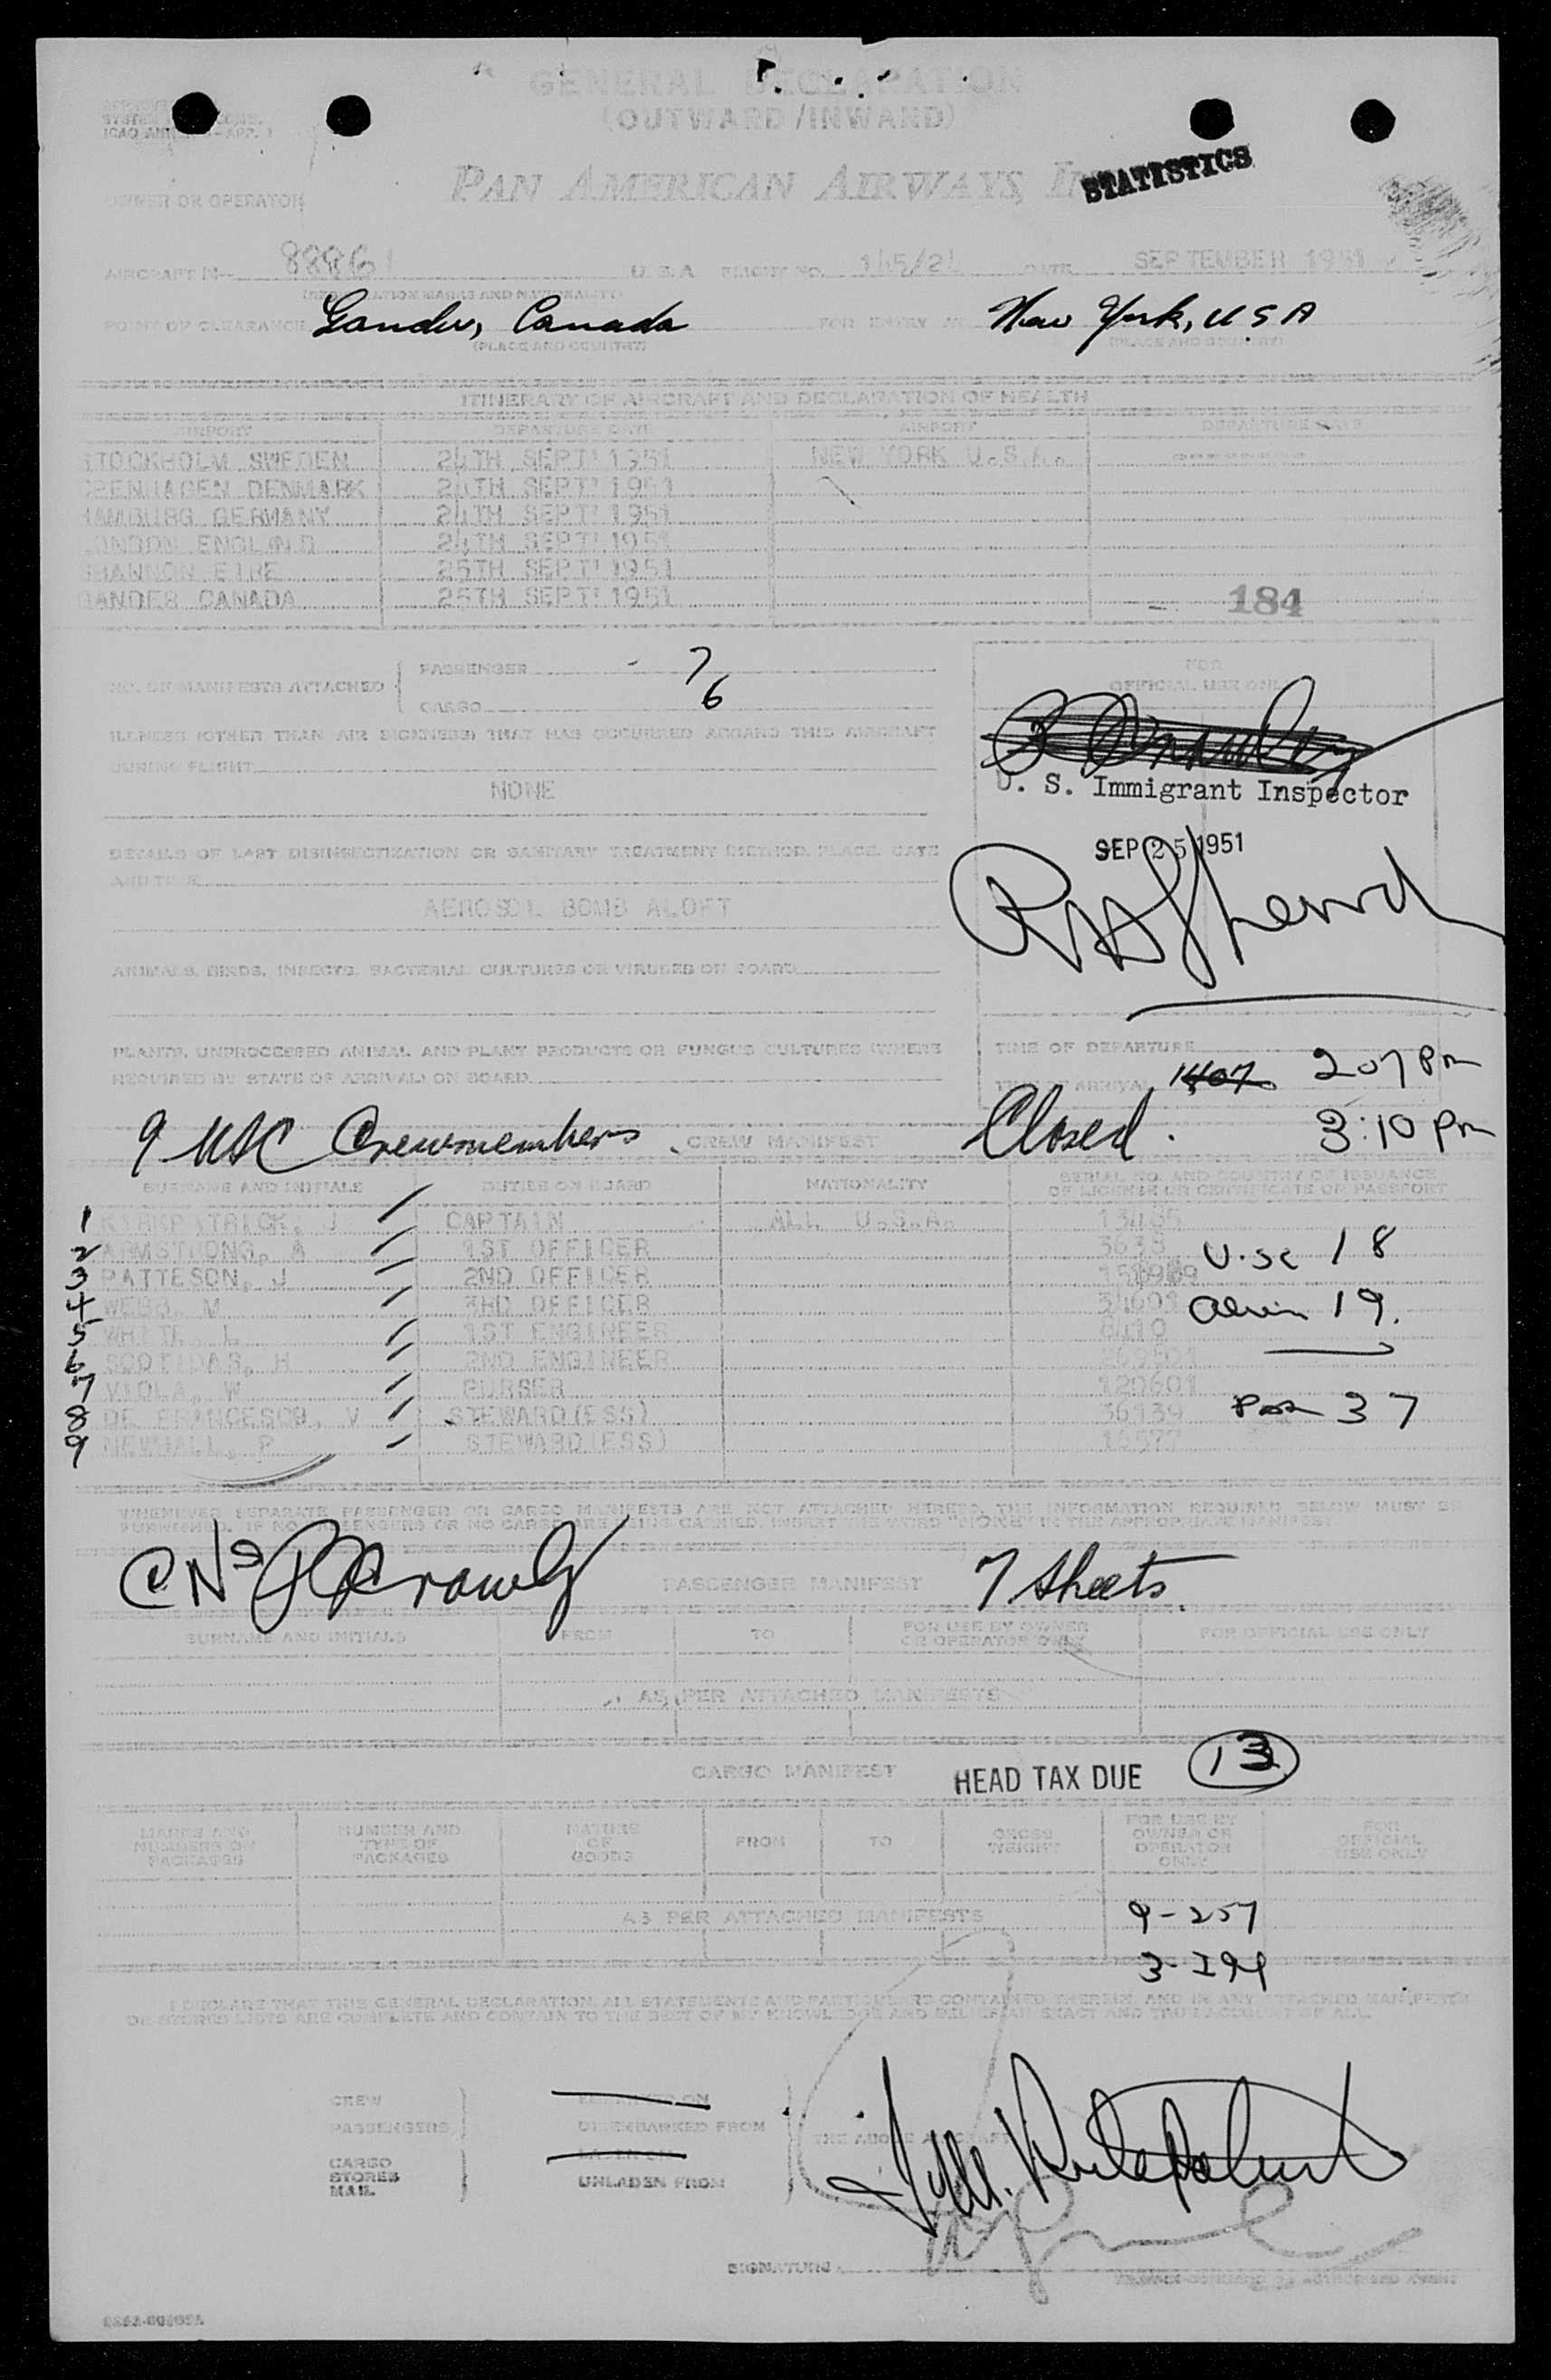 GENERAL DECLARATION
(OUTWARD/INWARD)
STATISTICS
PAN AMERICAN AIRWAYS,
OWNER OR OPERATOR
AIRCRAFT N- 88861 U.S.A FLIGHT NO. DATE SEPTEMBER 1951
(REGISTRATION MARKS AND NATIONALITY)
POINT OF CLEARANCE Gander, Canada FOR ENTRY AT New York, USA
(PLACE AND COUNTRY) (PLACE AND COUNTRY)
ITINERARY OF AIRCRAFT AND DECLARATION OF HEALTH
AIRPORT DEPARTURE DATE AIRPORT DEPARTURE DATE
STOCKHOLM SWEDEN 24TH SEPT' 1951 NEW YORK U.S.A.
PENHAGEN DENMARK 24TH SEPT' 1951
HAMBURG GERMANY 24TH SEPT' 1951
LONDON ENGLAND 24TH SEPT' 1951
SHANNON EIRE 25TH SEPT' 1951
GANDER CANADA 25TH SEPT' 1951
184
NO. OF MANIFESTS ATTACHED PASSENGER 7
CARGO 6
FOR
OFFICIAL USE ONLY
ILLNESS (OTHER THAN AIR SICKNESS) THAT HAS OCCURRED ABOARD THIS AIRCRAFT
DURING FLIGHT
NONE
U. S. Immigrant Inspector
SEP 25 1951
DETAILS OF LAST DISINSECTIZATION OR SANITARY TREATMENT (METHOD, PLACE, DATE
AND TIME
AEROSOL BOMB ALOFT
ANIMALS, BIRDS, INSECTS, BACTERIAL CULTURES OR VIRUSES ON BOARD
PLANTS, UNPROCESSED ANIMAL AND PLANT PRODUCTS OR FUNGUS CULTURES (WHERE
REQUIRED BY STATE OF ARRIVAL) ON BOARD
TIME OF DEPARTURE
TIME OF ARRIVAL 1407 207 Pm
9 USC Crewmembers CREW MANIFEST Closed. 3:10 Pm
SURNAME AND INITIALS DUTIES ON BOARD NATIONALITY SERIAL NO. AND COUNTRY OF ISSUANCE
OF LICENSE OR CERTIFICATE OR PASSPORT
1 KIRKPATRICK, J CAPTAIN ALL U.S.A. 13485
2 ARMSTRONG, A 1ST OFFICER U.SC 18
3 PATTESON, J 2ND OFFICER
4 WEBB, M 3RD OFFICER 19.
5 1ST ENGINEER
6 2ND ENGINEER
7 VIOLA, W PURSER 120601
8 DE FRANCESCO, V STEWARD(ESS) 36139 37
9 NEWHALL, P STEWARD(ESS)
WHENEVER SEPARATE PASSENGER OR CARGO MANIFESTS ARE NOT ATTACHED HERETO, THE INFORMATION REQUIRED BELOW MUST BE
PASSENGER MANIFEST 7 Sheets.
SURNAME AND INITIALS FROM TO FOR USE BY OWNER
OR OPERATOR ONLY FOR OFFICIAL USE ONLY
AS PER ATTACHED MANIFESTS
CARGO MANIFEST HEAD TAX DUE 13
MARKS AND
NUMBERS ON
PACKAGES
NUMBER AND
TYPE OF
PACKAGES
NATURE
OF
GOODS
FROM
TO
GROSS
WEIGHT
FOR USE BY
OWNER OR
OPERATOR
ONLY
FOR
OFFICIAL
USE ONLY
AS PER ATTACHED MANIFESTS 9-257
I DECLARE THAT THIS GENERAL DECLARATION, ALL STATEMENTS AND PARTICULARS CONTAINED THEREIN AND IN ANY ATTACHED MANIFESTS
OR STORES LISTS ARE COMPLETE AND CONTAIN TO THE BEST OF MY KNOWLEDGE AND BELIEF AN EXACT AND TRUE ACCOUNT OF ALL.
CREW
PASSENGERS DISEMBARKED FROM THE ABOVE AIRCRAFT
CARGO
STORES
MAIL
UNLADEN FROM
SIGNATURE